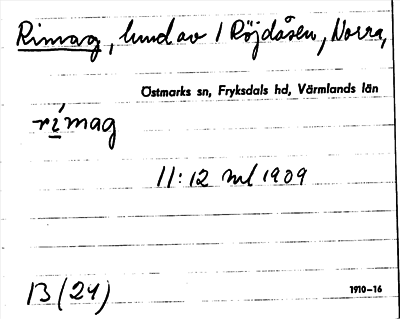 Rimag, lund av 1 Röjdåsen, Norra,
Östmarks sn, Fryksdals hd, Värmlands län
rímag
11:12 ml 1909
13 (24)
1910–16